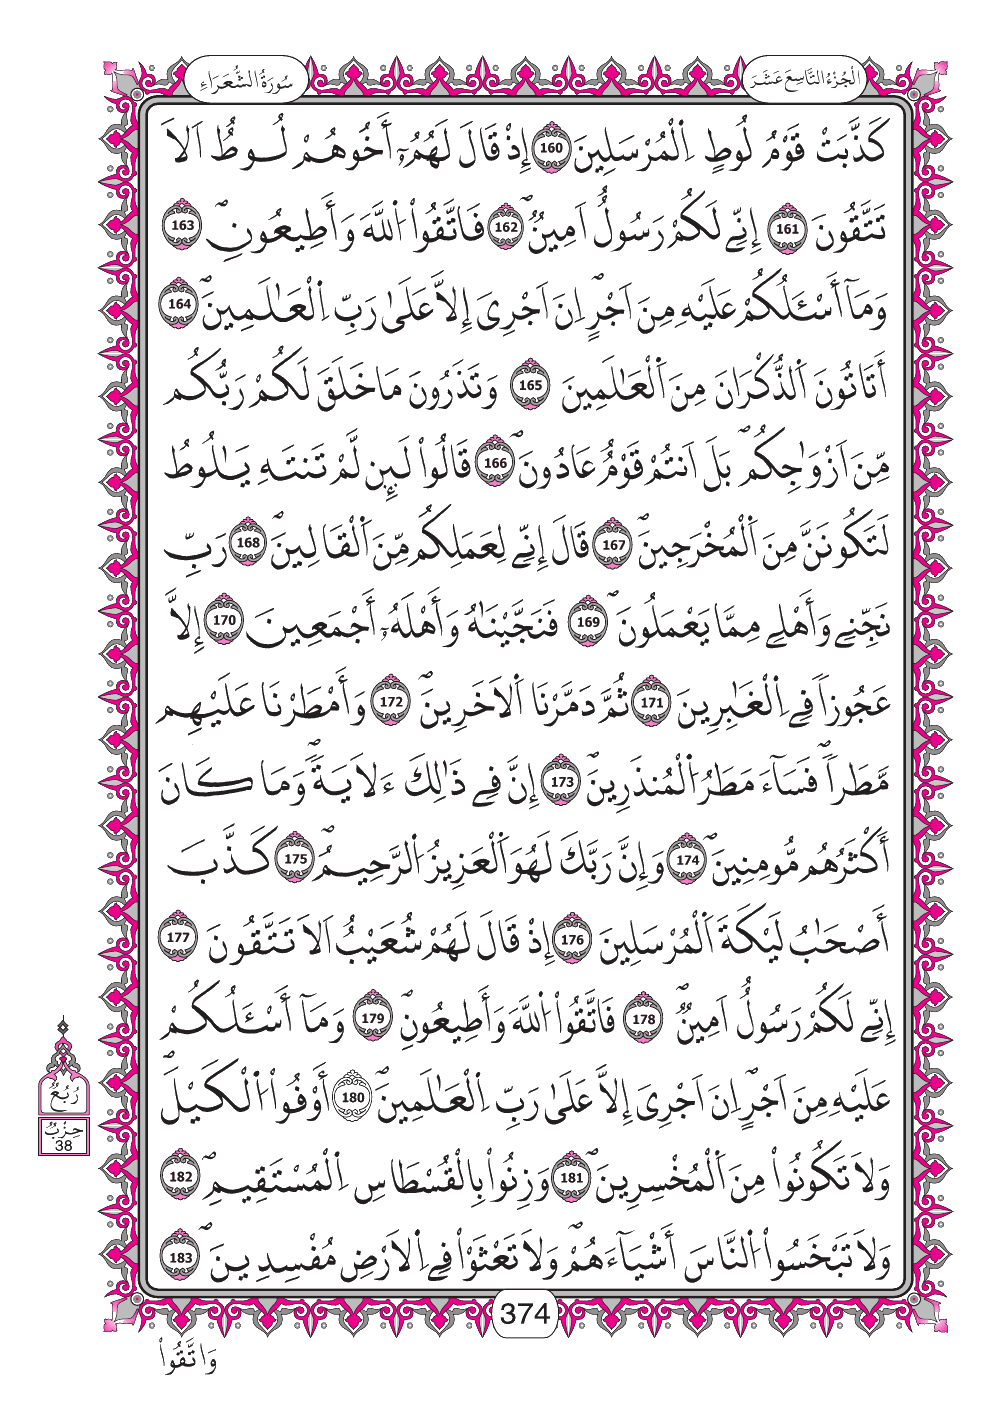 الجُزْءُ التَّاسِعَ عَشَرَ
سُورَةُ الشُّعَرَاءِ
كَذَّبَتْ قَوْمُ لُوطٍ اِ۬لْمُرْسَلِينَ 160 إِذْ قَالَ لَهُمُۥٓ أَخُوهُمْ لُوطٌ اَلَا
تَتَّقُونَ 161 إِنِّے لَكُمْ رَسُولٌ اَمِينٌۖ 162 فَاتَّقُواْ اُ۬للَّهَ وَأَطِيعُونِۖ 163
وَمَآ أَسْـَٔلُكُمْ عَلَيْهِ مِنَ اَجْرٍۖ اِنَ اَجْرِىَ إِلَّا عَلَىٰ رَبِّ اِ۬لْعَٰلَمِينَۖ 164
أَتَاتُونَ اَ۬لذُّكْرَانَ مِنَ اَ۬لْعَٰلَمِينَ 165 وَتَذَرُونَ مَا خَلَقَ لَكُمْ رَبُّكُم
مِّنَ اَزْوَٰجِكُمۖ بَلَ اَنتُمْ قَوْمٌ عَادُونَۖ 166 قَالُواْ لَئِن لَّمْ تَنتَهِ يَٰلُوطُ
لَتَكُونَنَّ مِنَ اَ۬لْمُخْرَجِينَۖ 167 قَالَ إِنِّے لِعَمَلِكُم مِّنَ اَ۬لْقَالِينَۖ 168 رَبِّ
نَجِّنِے وَأَهْلِے مِمَّا يَعْمَلُونَۖ 169 فَنَجَّيْنَٰهُ وَأَهْلَهُۥٓ أَجْمَعِينَ 170 إِلَّا
عَجُوزاً فِے اِ۬لْغَٰبِرِينَ 171 ثُمَّ دَمَّرْنَا اَ۬لَاخَرِينَۖ 172 وَأَمْطَرْنَا عَلَيْهِم
مَّطَراًۖ فَسَآءَ مَطَرُ اُ۬لْمُنذَرِينَۖ 173 إِنَّ فِے ذَٰلِكَ ءَلَايَةًۖ وَمَا كَانَ
أَكْثَرُهُم مُّومِنِينَۖ 174 وَإِنَّ رَبَّكَ لَهُوَ اَ۬لْعَزِيزُ اُ۬لرَّحِيمُۖ 175 كَذَّبَ
أَصْحَٰبُ لَيْكَةَ اَ۬لْمُرْسَلِينَ 176 إِذْ قَالَ لَهُمْ شُعَيْبٌ اَلَا تَتَّقُونَ 177
إِنِّے لَكُمْ رَسُولٌ اَمِينٌۖ 178 فَاتَّقُواْ اُ۬للَّهَ وَأَطِيعُونِۖ 179 وَمَآ أَسْـَٔلُكُمْ
عَلَيْهِ مِنَ اَجْرٍۖ اِنَ اَجْرِىَ إِلَّا عَلَىٰ رَبِّ اِ۬لْعَٰلَمِينَۖ 180 أَوْفُواْ اُ۬لْكَيْلَۖ
وَلَا تَكُونُواْ مِنَ اَ۬لْمُخْسِرِينَۖ 181 وَزِنُواْ بِالْقُسْطَاسِ اِ۬لْمُسْتَقِيمِۖ 182
وَلَا تَبْخَسُواْ اُ۬لنَّاسَ أَشْيَآءَهُمْۖ وَلَا تَعْثَوْاْ فِے اِ۬لَارْضِ مُفْسِدِينَۖ 183
رُبُعٌ
حِزْبٌ
38
374
وَاتَّقُواْ